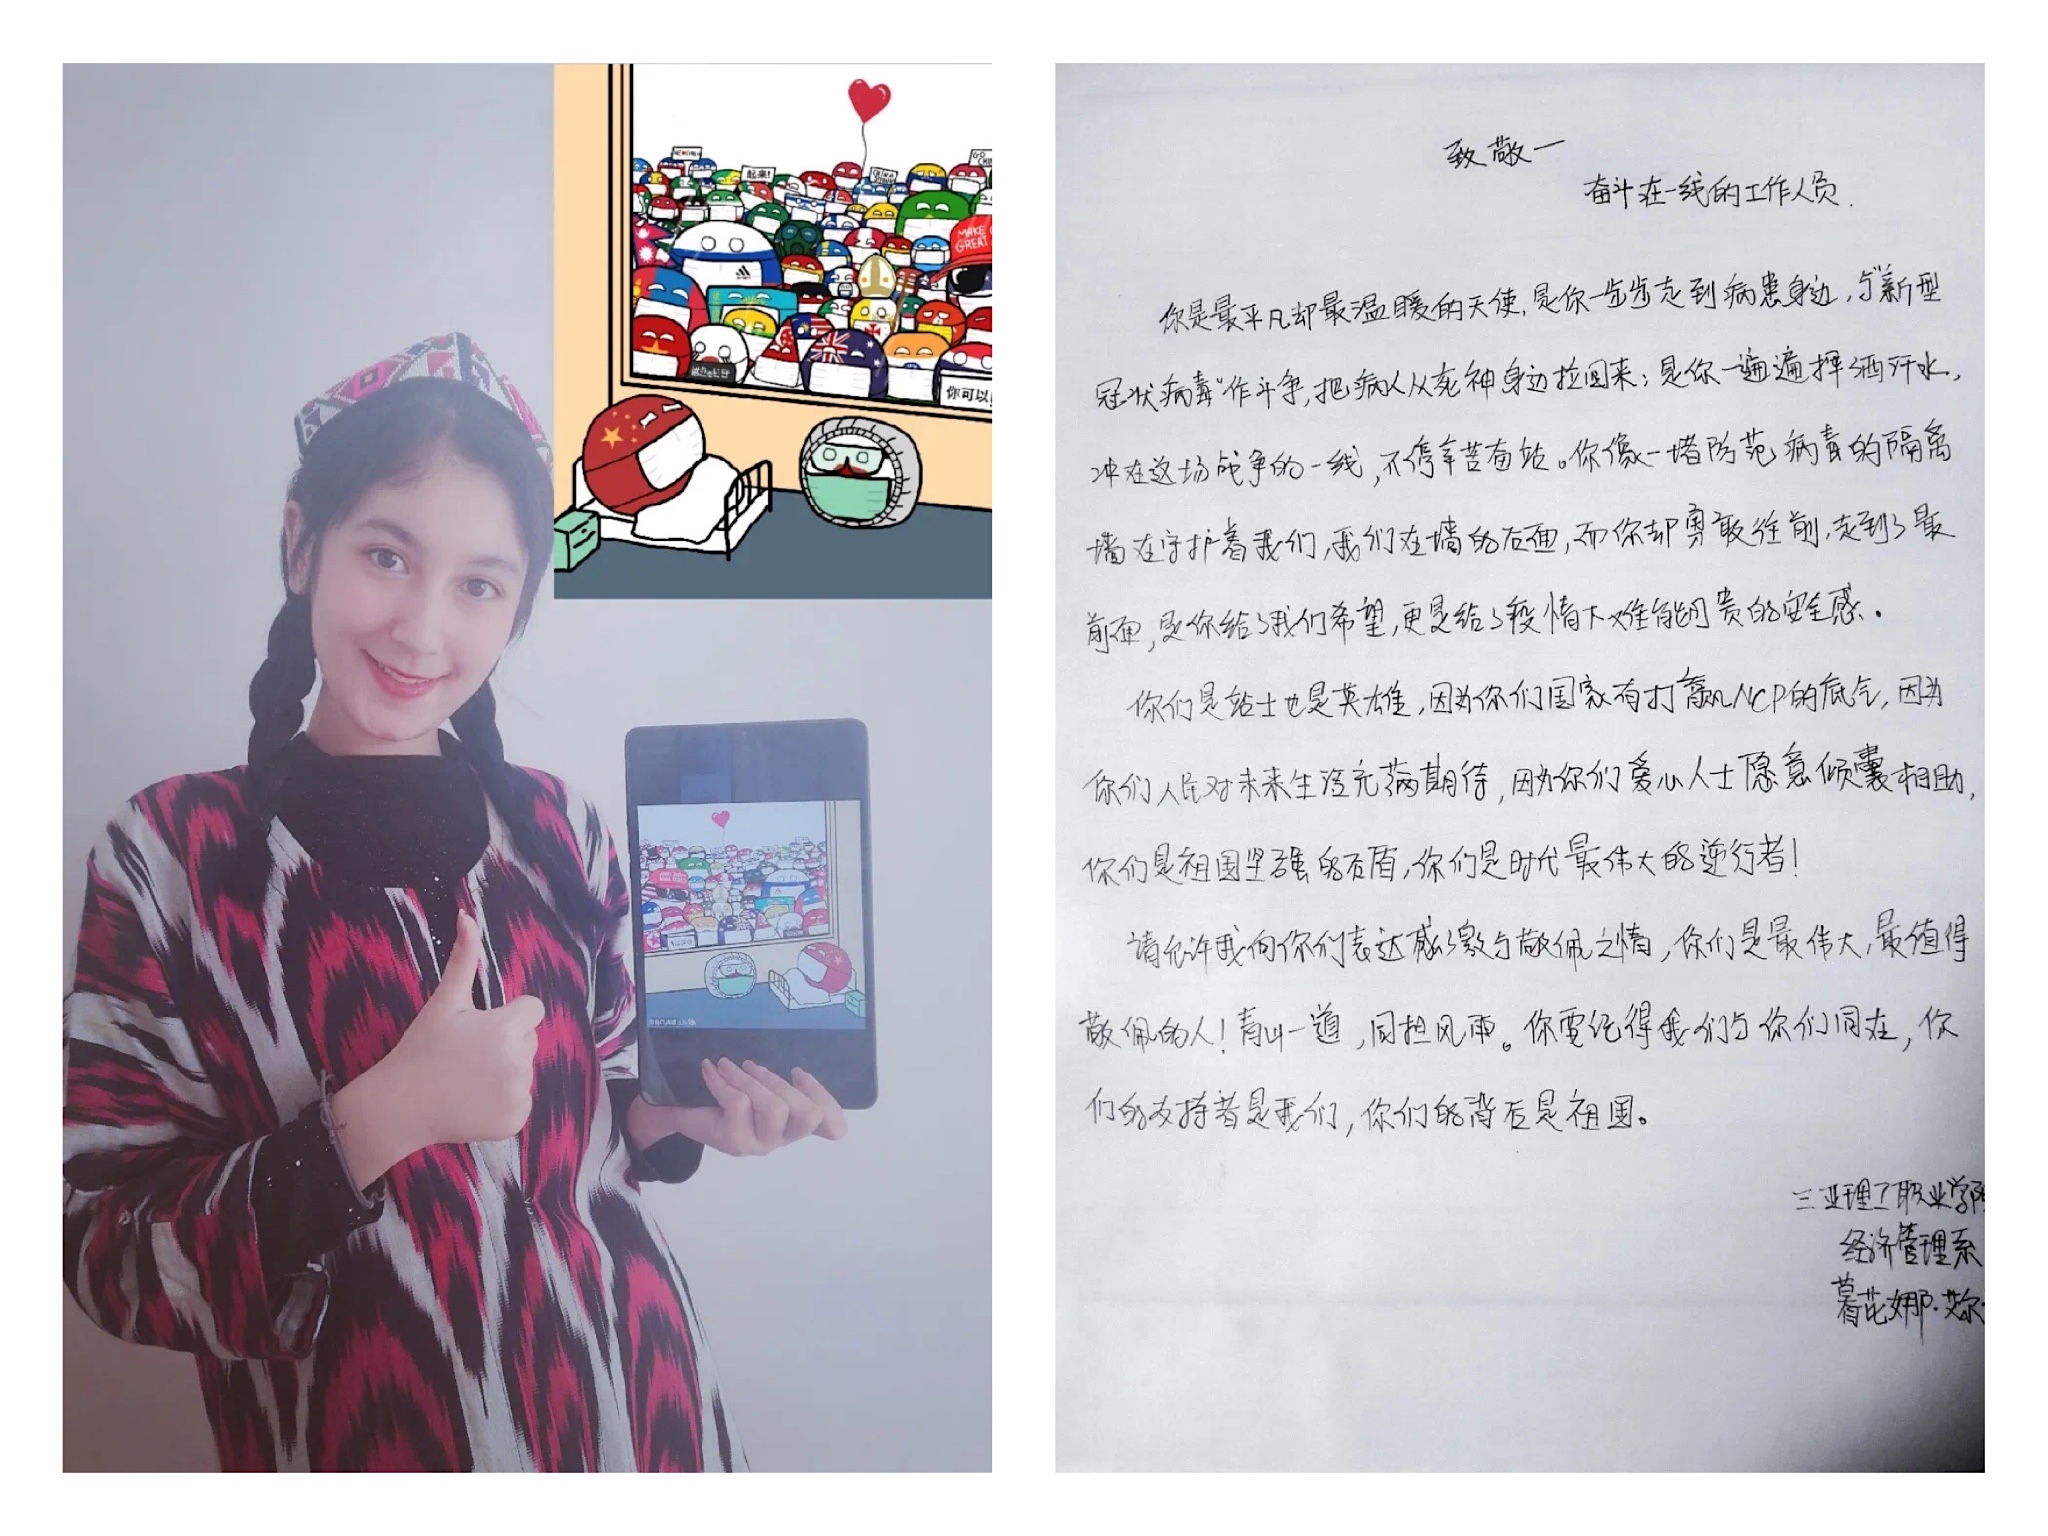 起来!
CHINA
MAKE
GREAT
你可以
致敬一
奋斗在一线的工作人员.
你是最平凡却最温暖的天使,是你一步步走到病患身边,与"新型
冠状病毒"作斗争,把病人从死神身边拉回来;是你一遍遍挥洒汗水,
冲在这场战争的一线,不停辛苦奋站。你像一堵防范病毒的隔离
墙在守护着我们,我们在墙的后面,而你却勇敢往前,走到了最
前面,是你给了我们希望,更是给了疫情大难能可贵的安全感。
你们是站士也是英雄,因为你们国家有打赢NCP的底气,因为
你们人民对未来生活充满期待,因为你们爱心人士愿意倾囊相助,
你们是祖国坚强的后盾,你们是时代最伟大的逆行者!
请允许我向你们表达感激与敬佩之情,你们是最伟大,最值得
敬佩的人!青山一道,同担风雨。你要记得我们与你们同在,你
们的支持者是我们,你们的背后是祖国。
三亚理工职业学院
经济管理系
暮花娜·艾尔